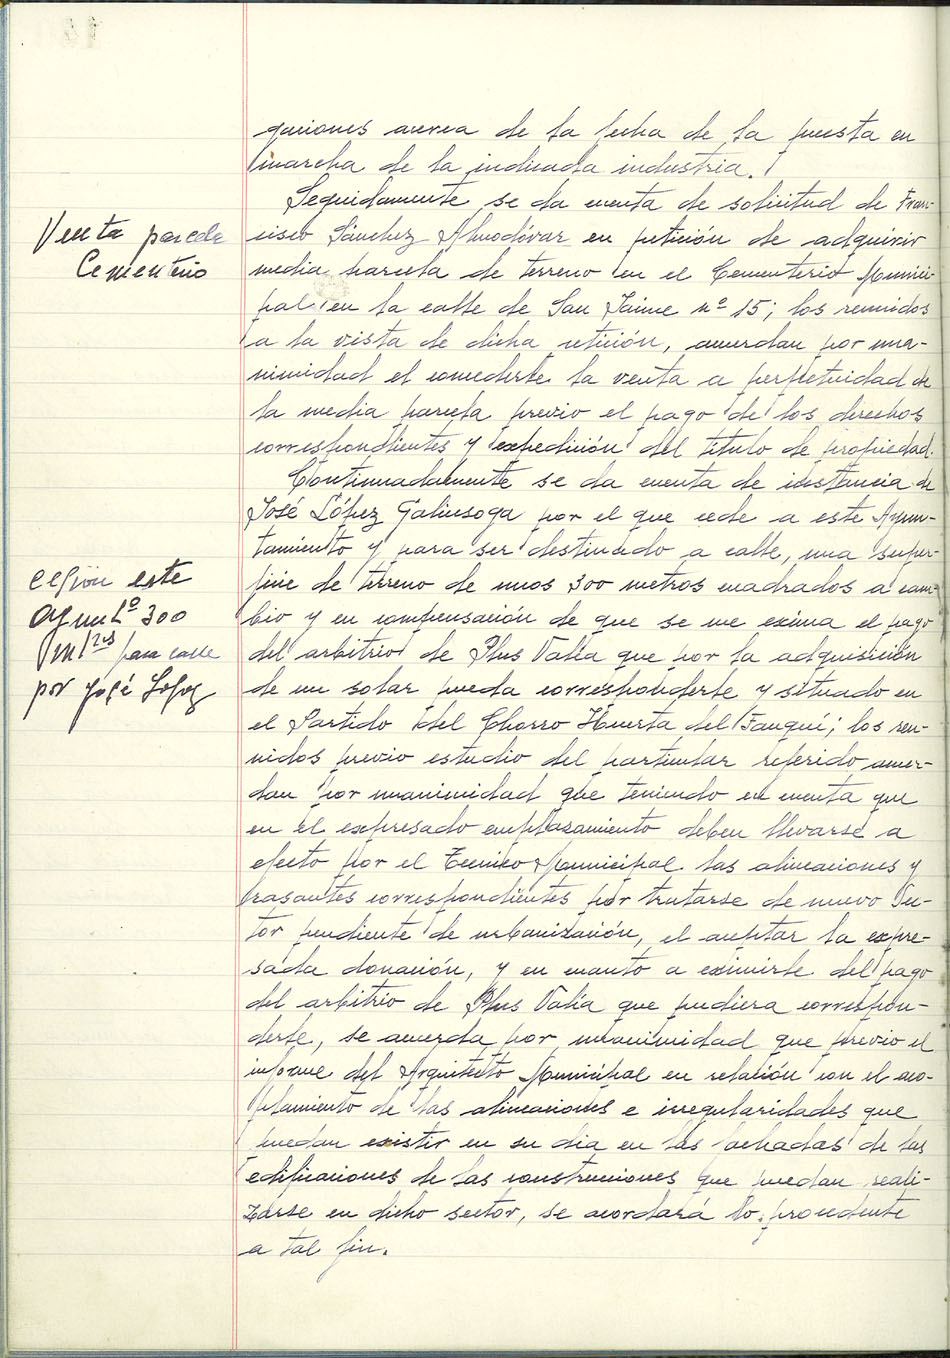 gaciones acerca de la fecha de la puesta en
marcha de la indicada industria.
Seguidamente se da cuenta de solicitud de Fran-
Venta parcela
Cementerio
cisco Sánchez Almodóvar en petición de adquirir
media parcela de terreno en el Cementerio Munici-
pal en la calle de San Jaime nº 15; los reunidos
a la vista de dicha petición, acuerdan por una-
nimidad el concederle la venta a perpetuidad de
la media parcela previo el pago de los derechos
correspondientes y expedición del título de propiedad.
Continuadamente se da cuenta de instancia de
José López Galiusoga por el que cede a este Ayun-
tamiento y para ser destinado a calle, una super-
cesión este
Ayuntº 300
mt2s para calle
por José Lopez
ficie de terreno de unos 300 metros cuadrados a cam-
bio y en compensación de que se me exima el pago
del arbitrio de Plus Valía que por la adquisición
de un solar pueda corresponderle y situado en
el Partido del Chorro Huerta del Fauquí; los reu-
nidos previo estudio del particular referido acuer-
dan por unanimidad que teniendo en cuenta que
en el expresado emplazamiento deben llevarse a
efecto por el Técnico Municipal las alineaciones y
rasantes correspondientes por tratarse de nuevo Sec-
tor pendiente de urbanización, el aceptar la expre-
sada donación, y en cuanto a eximirle del pago
del arbitrio de Plus Valía que pudiera correspon-
derle, se acuerda por unanimidad que previo el
informe del Arquitecto Municipal en relación con el aco-
plamiento de las alineaciones e irregularidades que
puedan existir en su dia en las fachadas de las
edificaciones de las construcciones que puedan reali-
zarse en dicho sector, se acordará lo procedente
a tal fin.